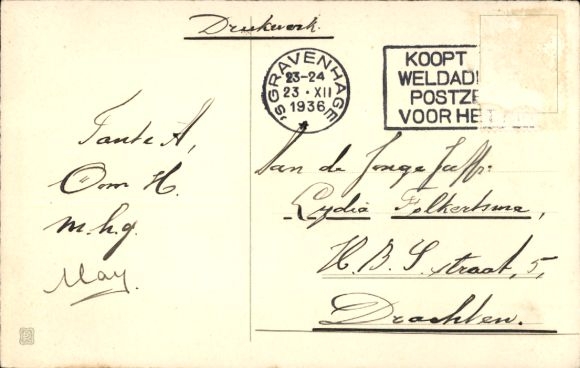 Drukwerk.
'S GRAVENHAGE
23-24
23 · XII
1936
KOOPT
WELDADI
POSTZE
VOOR HET
Tante A,
Oom H.
m.h.g.
May.
Aan de Jonge Juffr:
Lydia Folkertsma,
H. B. S. straat, 5,
Drachten.